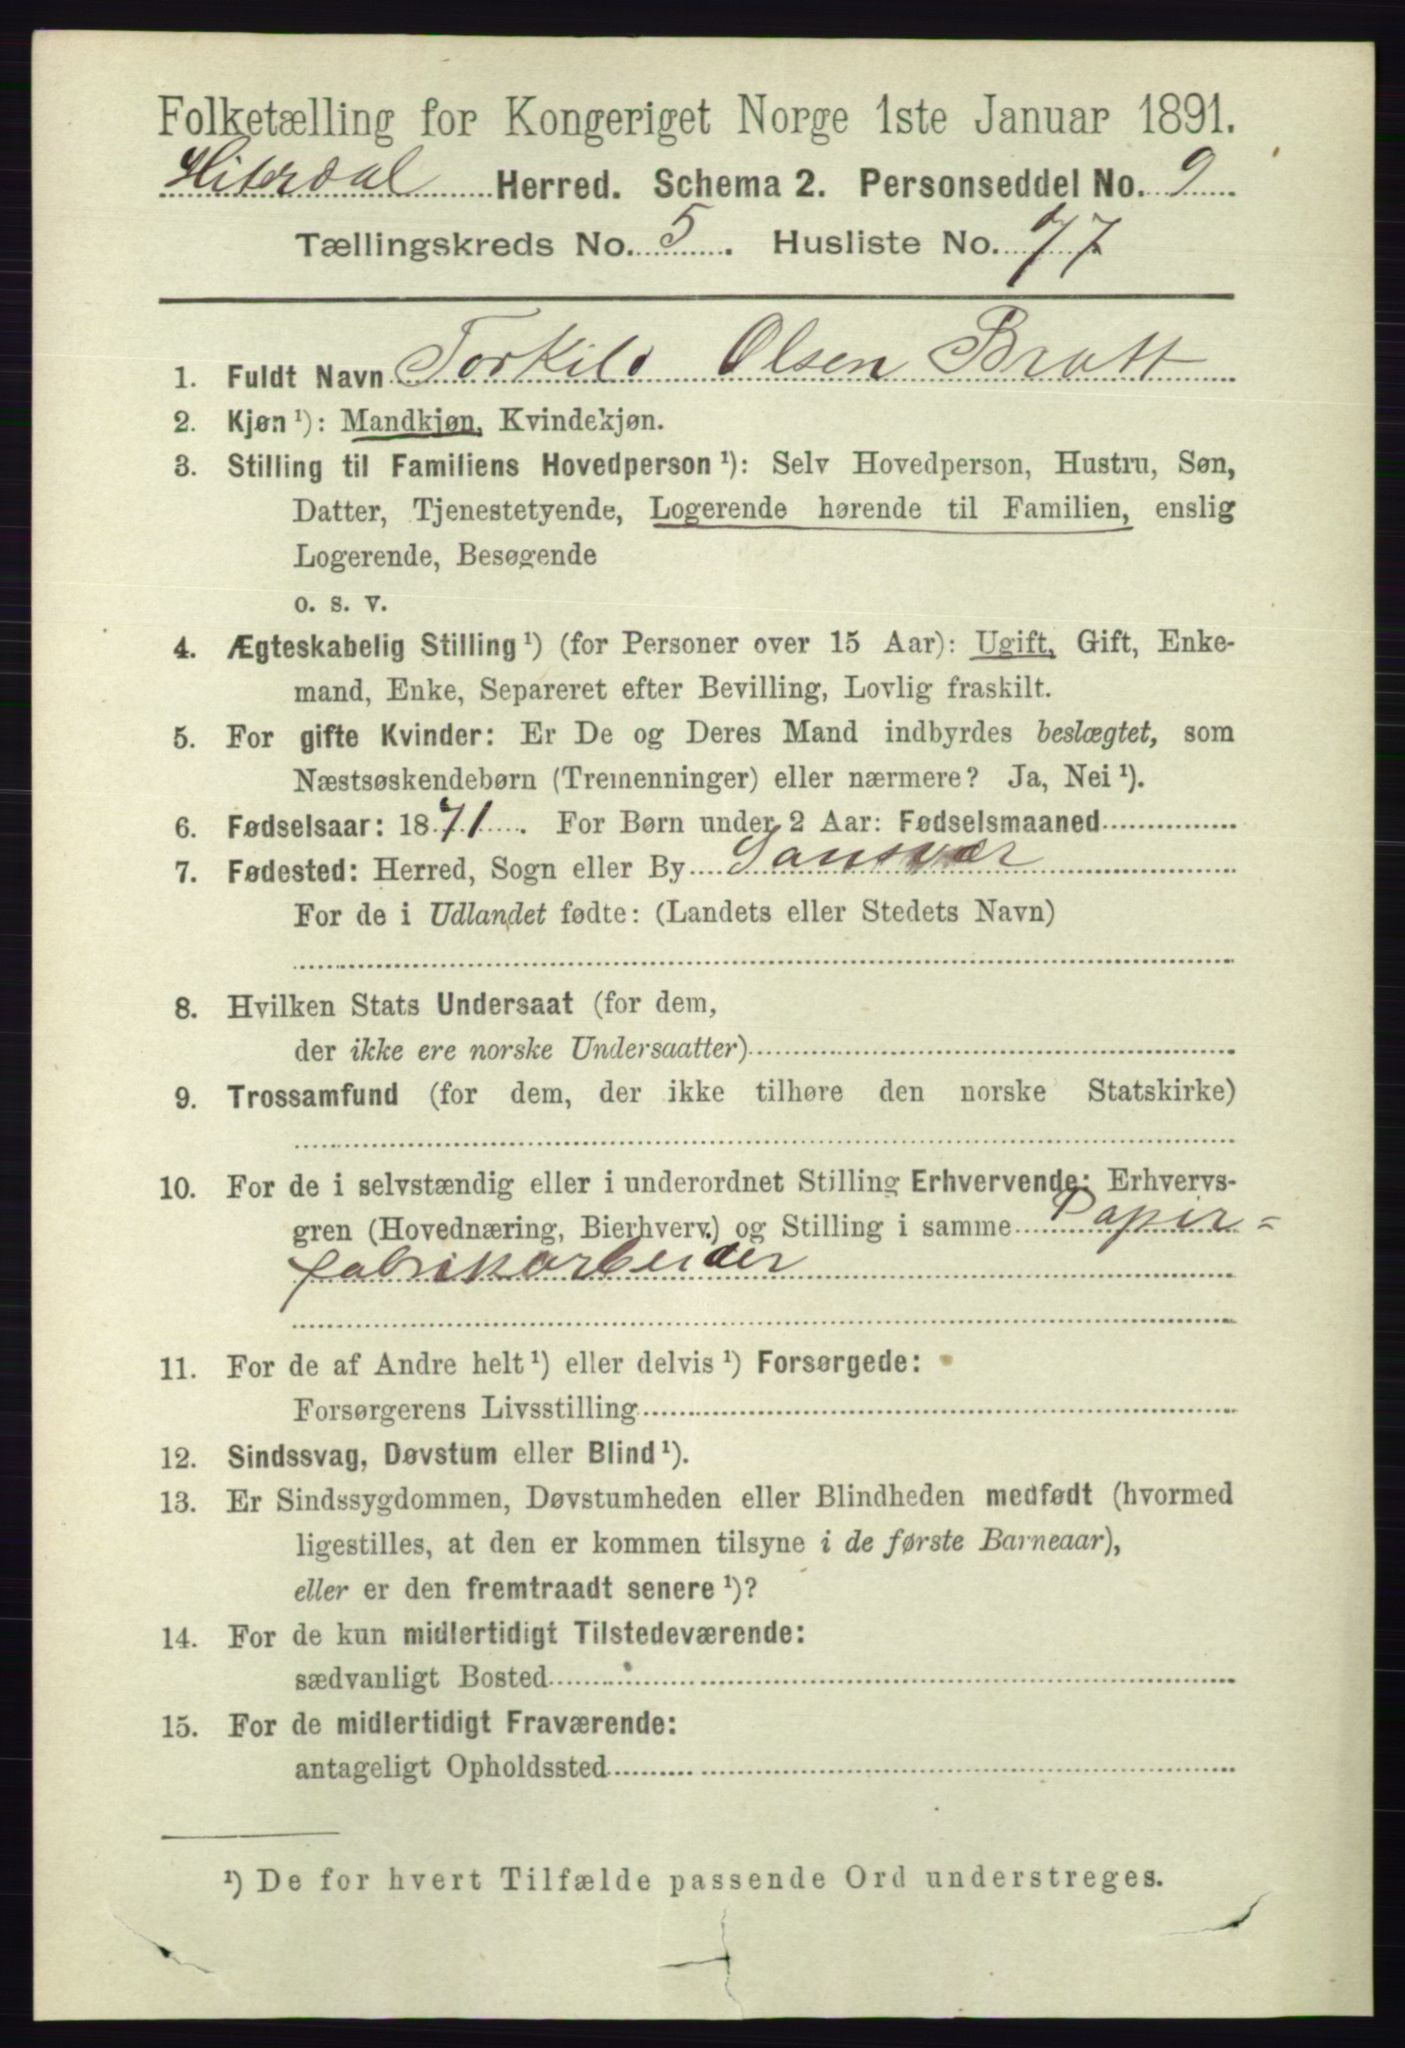 Folketælling for Kongeriget Norge 1ste Januar 1891.
Hiterdal Herred. Schema 2. Personseddel No. 9
Tællingskreds No. 5. Husliste No. 77
1. Fuldt Navn Torkild Olsen Bratt
2. Kjøn ¹): Mandkjøn, Kvindekjøn.
3. Stilling til Familiens Hovedperson ¹): Selv Hovedperson, Hustru, Søn,
Datter, Tjenestetyende, Logerende hørende til Familien, enslig
Logerende, Besøgende
o. s. v.
4. Ægteskabelig Stilling ¹) (for Personer over 15 Aar): Ugift, Gift, Enke-
mand, Enke, Separeret efter Bevilling, Lovlig fraskilt.
5. For gifte Kvinder: Er De og Deres Mand indbyrdes beslægtet, som
Næstsøskendebørn (Tremenninger) eller nærmere? Ja, Nei ¹).
6. Fødselsaar: 1871. For Børn under 2 Aar: Fødselsmaaned
7. Fødested: Herred, Sogn eller By Sansvær
For de i Udlandet fødte: (Landets eller Stedets Navn)
8. Hvilken Stats Undersaat (for dem,
der ikke ere norske Undersaatter)
9. Trossamfund (for dem, der ikke tilhøre den norske Statskirke)
10. For de i selvstændig eller i underordnet Stilling Erhvervende: Erhvervs-
gren (Hovednæring, Bierhverv.) og Stilling i samme Papir=
fabrikarbeider
11. For de af Andre helt ¹) eller delvis ¹) Forsørgede:
Forsørgerens Livsstilling
12. Sindssvag, Døvstum eller Blind ¹).
13. Er Sindssygdommen, Døvstumheden eller Blindheden medfødt (hvormed
ligestilles, at den er kommen tilsyne i de første Barneaar),
eller er den fremtraadt senere ¹)?
14. For de kun midlertidigt Tilstedeværende:
sædvanligt Bosted
15. For de midlertidigt Fraværende:
antageligt Opholdssted
¹) De for hvert Tilfælde passende Ord understreges.